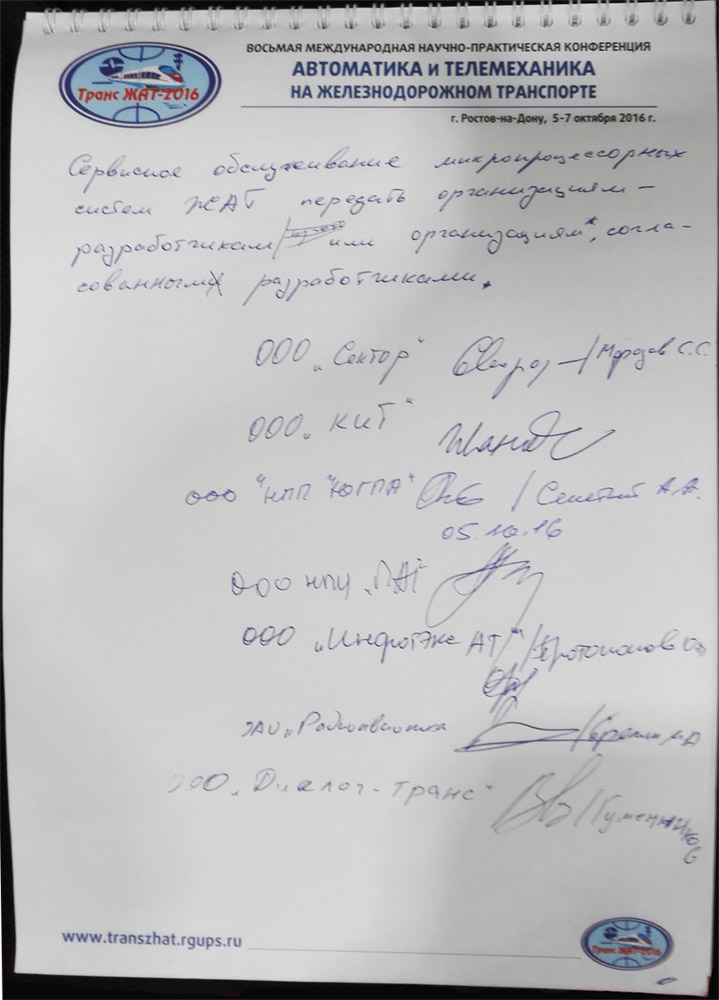 Транс ЖАТ-2016
ВОСЬМАЯ МЕЖДУНАРОДНАЯ НАУЧНО-ПРАКТИЧЕСКАЯ КОНФЕРЕНЦИЯ
АВТОМАТИКА и ТЕЛЕМЕХАНИКА
НА ЖЕЛЕЗНОДОРОЖНОМ ТРАНСПОРТЕ
г. Ростов-на-Дону, 5-7 октября 2016 г.
Сервисное обслуживание микропроцессорных
систем ЖАТ передать организациям-
разработчикам или организациям*, согла-
сованными разработчиками.
ООО „Сектор“ С.С.
ООО „КИТ“
ООО "НПП "ЮГПА" А.А.
05.10.16
ООО НПЦ
ООО „ИнфотЭкс АТ“ / Протопопов
ЗАО „Радиоавионика
ООО „Диалог-транс“ / Гуменников
www.transzhat.rgups.ru
Транс ЖАТ-2016